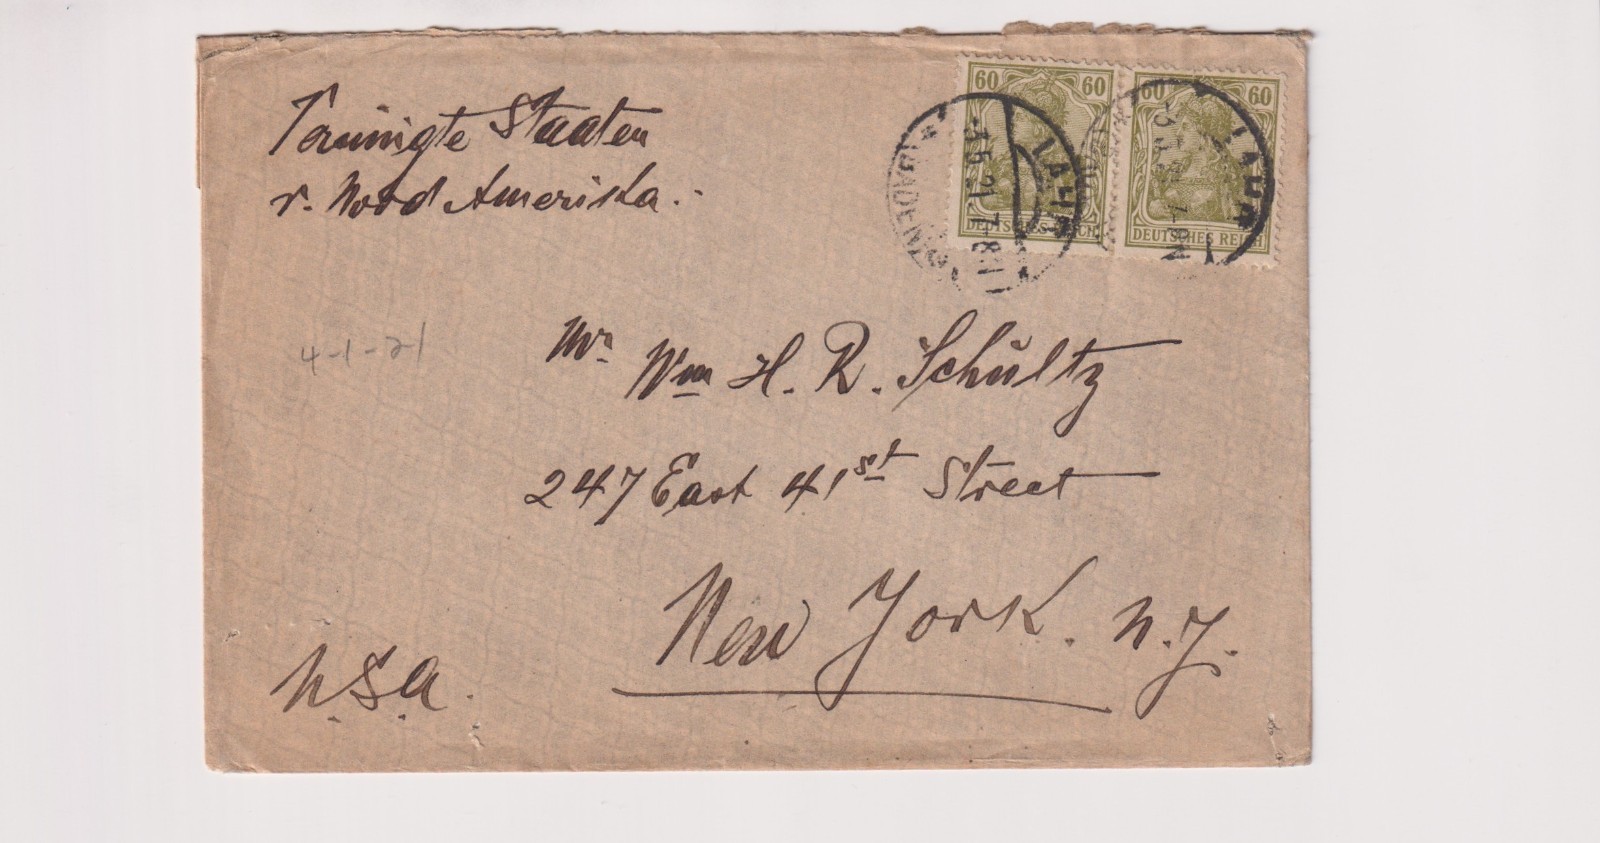 Vereinigte Staaten
v. Nord Amerika.
60 60
DEUTSCHES REICH
60 60
DEUTSCHES REICH
LAHR
(BADEN)
-3.5.21.7-8
LAHR
4-1-21
Mr. Wm H. R. Schŭltz
247 East 41st Street
New York. N.Y.
U.S.A.